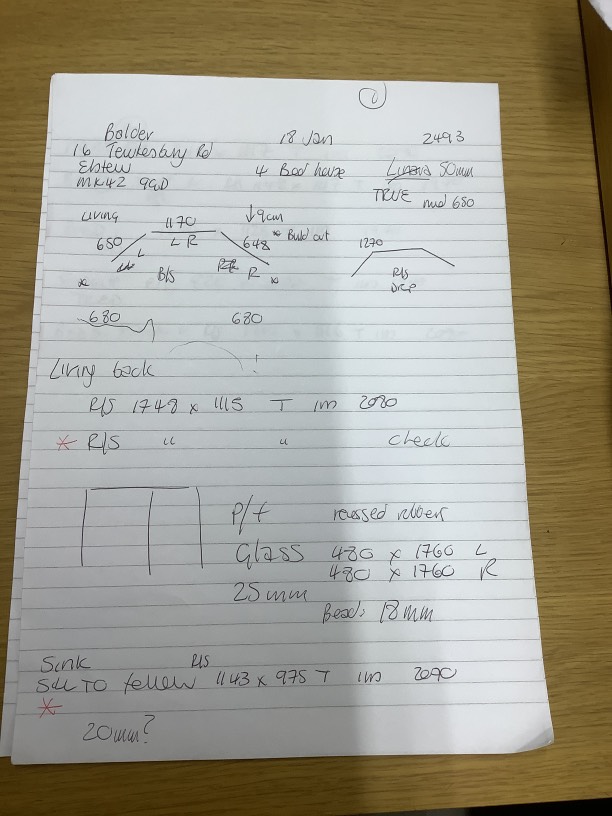 1
Bolder 18 Jan 2493
16 Tewkesbury Rd
Elstew 4 Bed house 50mm
MK42 9GD TRUE mid 680
Living 1170 ↓9cm
650 L R 648 * Build out 1270
L B/S R R/S
* *
680 680
Living back !
R/S 1748 x 1115 T 1m 2080
* R/S " " check
P/f rubber
Glass 480 x 1760 L
480 x 1760 R
25mm
Bead: 18mm
Sink R/S
Sill TO follow 1143 x 975 T 1m 2090
*
20mm?